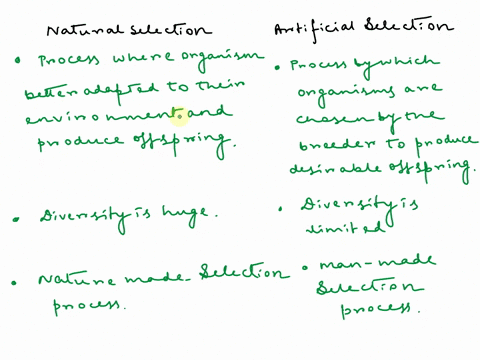 Natural Selection
• Process where organism
better adapted to their
environment and
produce offspring.
• Diversity is huge.
• Nature made Selection
process.
Artificial Selection
• Process by which
organisms are
chosen by the
breeder to produce
desirable offspring.
• Diversity is
limited
• man-made
Selection
process.